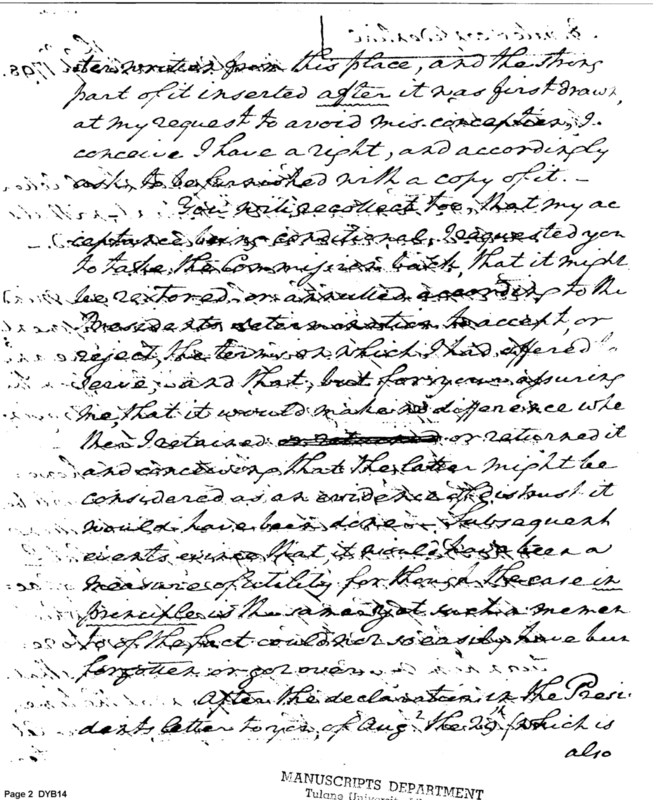 1798.
ter written from this place, and the strong
part of it inserted after it was first drawn,
at my request to avoid misconception, I
conceive I have a right, and accordingly
ask, to be furnished with a copy of it. —
You will recollect too, that my ac
ceptance being conditional, I requested you
to take the Commission back, that it might
be restored or annulled according to the
Presidents determination to accept, or
reject, the terms on which I had offered
serve; and that, but for your assuring
me, that it would make no difference whe
ther I retained or returned or returned it
and conceiving, that the latter might be
considered as an evidence of distrust it
would have been done. — Subsequent
events evince that, it would have been a
measure of utility for though the case in
principle is the same yet such a memen
to of the fact could not so easily have been
forgotten or got over.
After the declaration in the Presi-
dents letter to you, of Augt. the 29th (which is
also
MANUSCRIPTS DEPARTMENT
Tulane
Page 2 DYB14